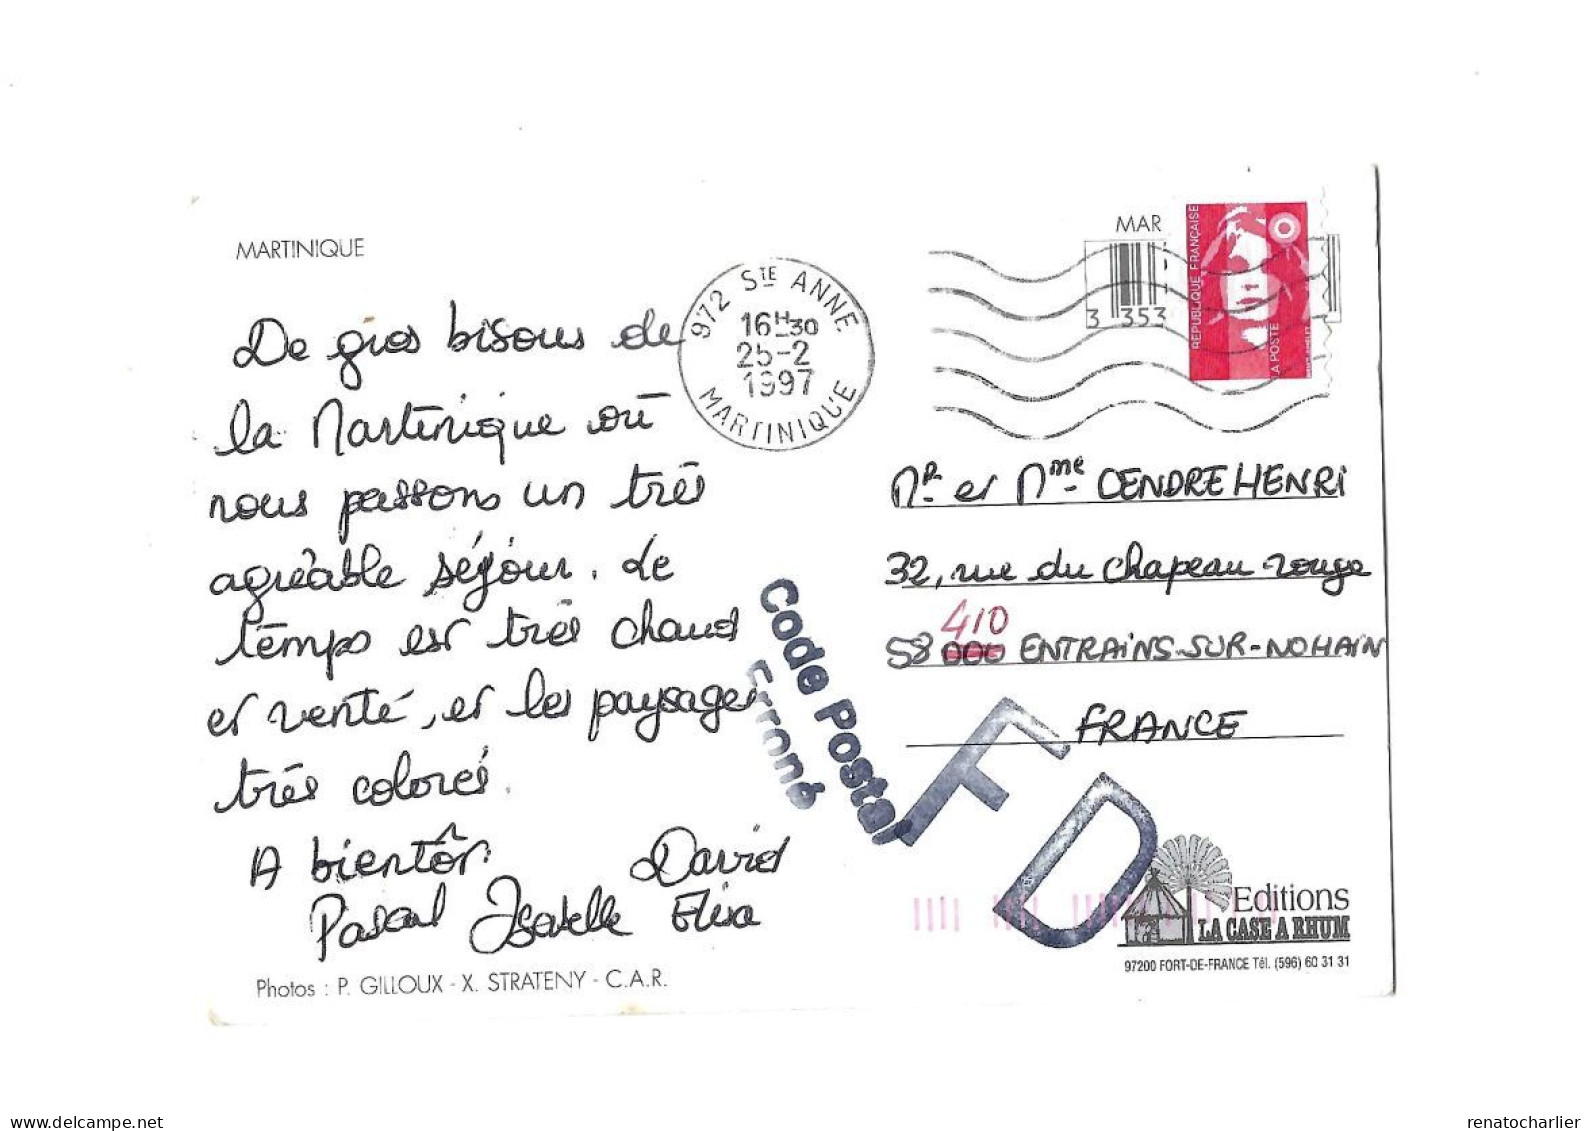 MARTINIQUE
De gros bisous de
la Martinique où
nous passons un très
agréable séjour. Le
temps est très chaud
et venté, et les paysages
très colorés.
A bientôt. David
Pascal Isabelle Elisa
Photos : P. GILLOUX - X. STRATENY - C.A.R.
972 STE ANNE
16H30
25-2
1997
MARTINIQUE
MAR
3 353
REPUBLIQUE FRANÇAISE
LA POSTE
Mr et Mme CENDRE HENRI
32, rue du chapeau rouge
410
58 000 ENTRAINS-SUR-NOHAIN
FRANCE
Code Postal
Erroné
FD
Editions
LA CASE A RHUM
97200 FORT-DE-FRANCE Tél. (596) 60 31 31
delcampe.net
renatocharlier